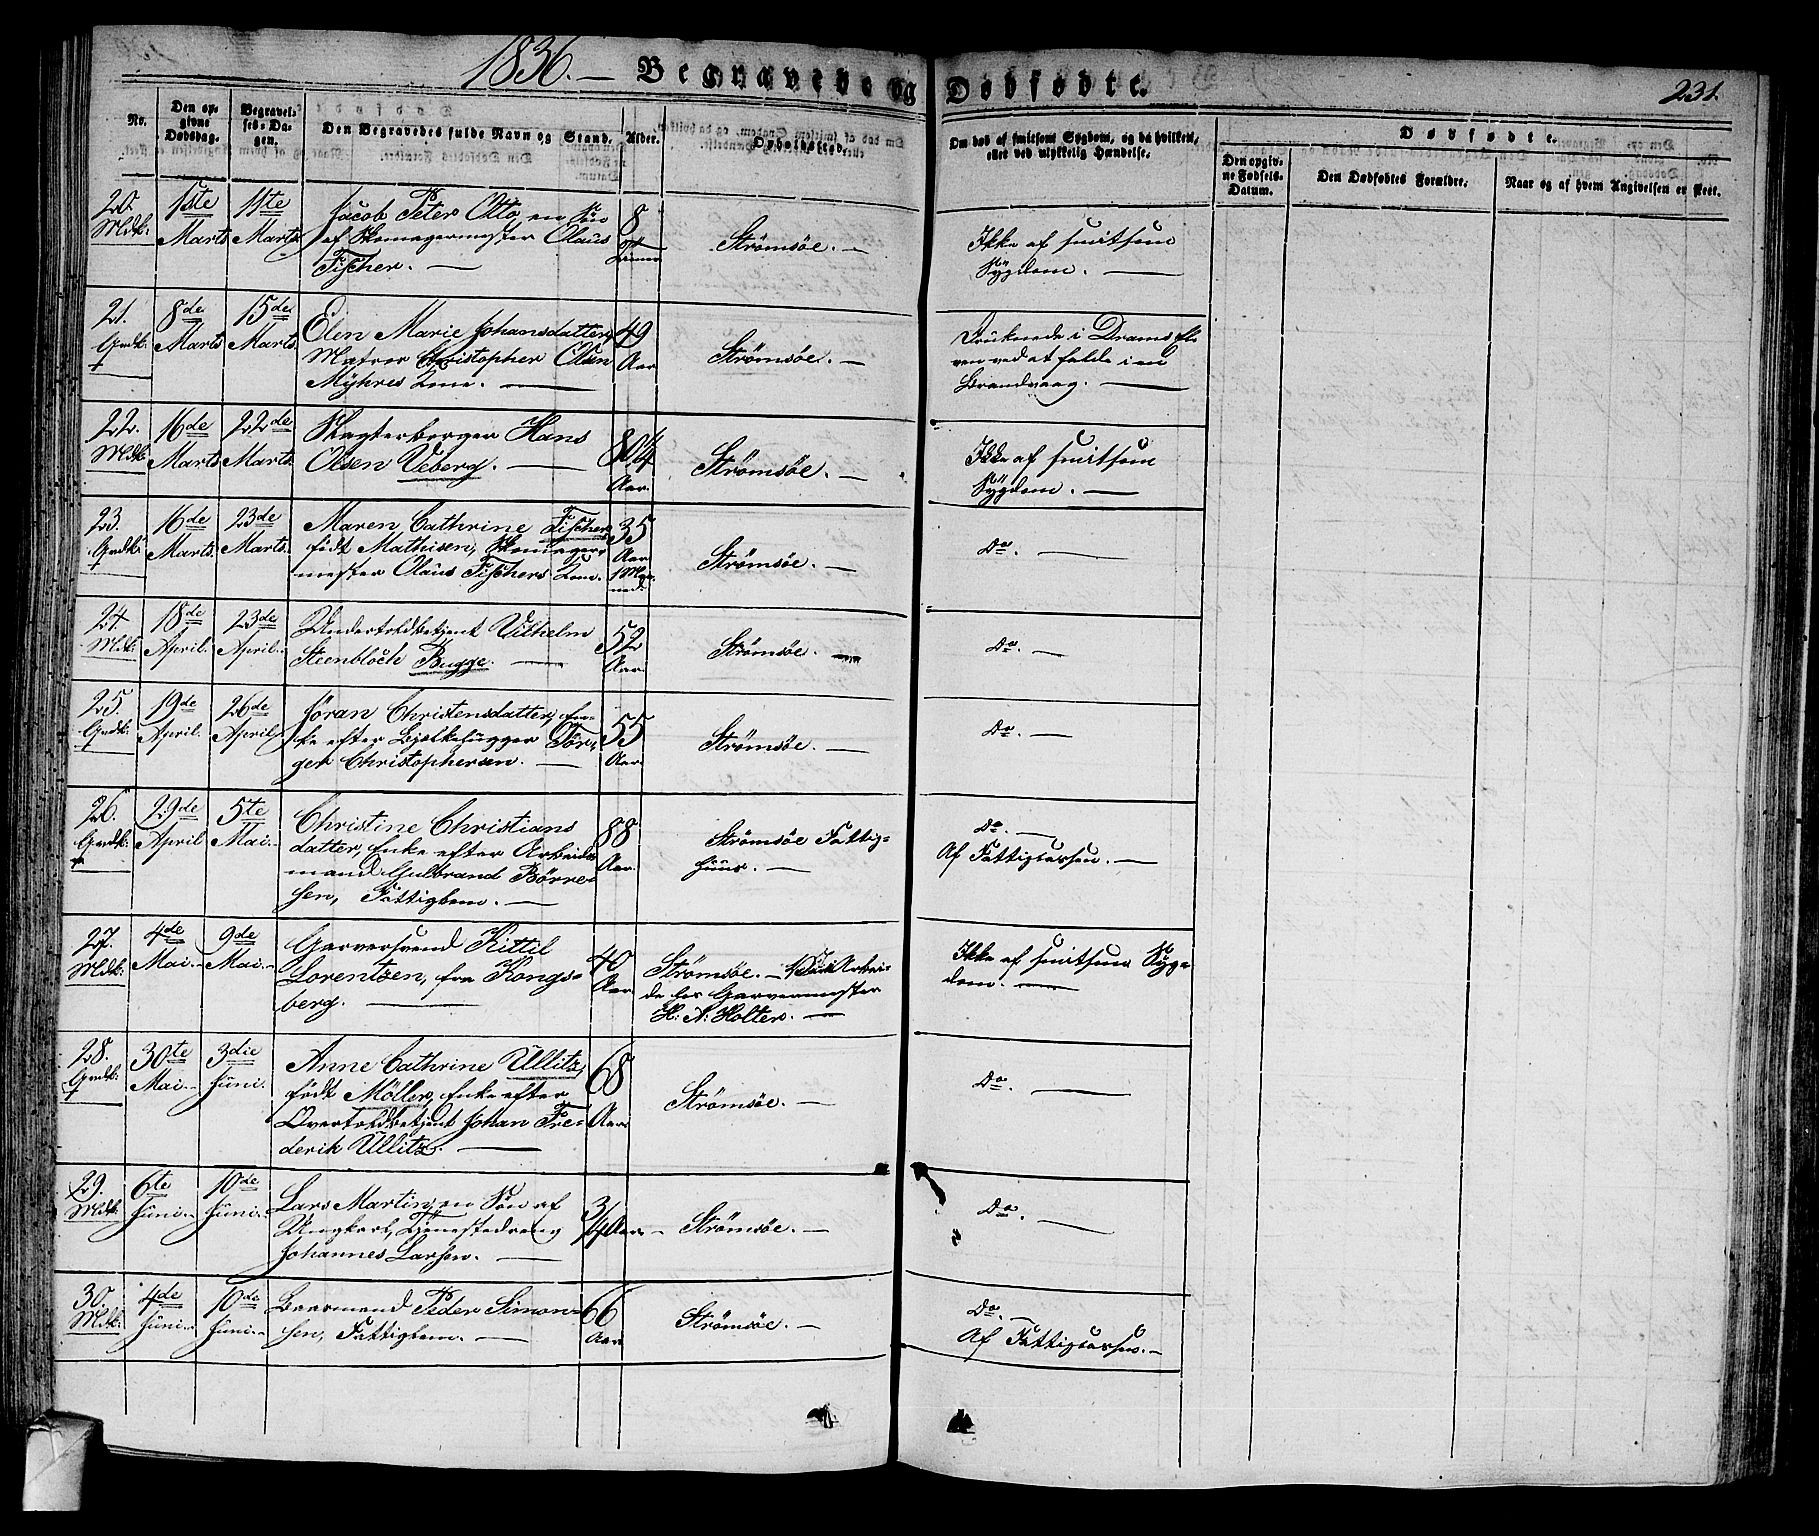 1836. — Begravede og Dödfödte.
231.
No.
Den opgivne Dødsdag.
Begravelses-Dagen.
Den Begravedes fulde Navn og Stand.
Alder.
Opholdssted.
Om død af smitsom Sygdom, og da hvilken, eller ved ulykkelig Hændelse.
Dødfødte.
Den opgivne Fødsels-Datum.
Den Dødfødtes Forældre.
Naar og af hvem Angivelsen er skeet.
20. Mdk:
1ste Marts
11te Marts
Jacob Peter Otto, en Søn
af Skomagermester Olaus
Fischer. —
8
Strömsöe. —
Ikke af smitsom
Sygdom. —
21. Qvdk:
8de Marts
15de Marts
Elen Marie Johansdatter,
Matros Christopher Olsen
Myhres Kone. —
49 Aar
Strömsöe. —
Druknede i Drams Elven
ved at falde i en
Brandvaag. —
22. Mdk:
16de Marts
22de Marts
Slagterborger Hans
Olsen Veberg. —
80¼ Aar.
Strömsöe. —
Ikke af smitsom
Sygdom. —
23. Qvdk:
16de Marts
23de Marts.
Maren Cathrine Fischer,
født Mathisen, Skomager-
mester Olaus Fischers Kone.
35 Aar 1 Maaned.
Strömsöe. —
Do. —
24. Mdk:
18de April.
23de April.
Undertoldbetjent Vilhelm
Steenbloch Bugge. —
52 Aar
Strömsöe. —
Do. —
25. Qvdk:
19de April.
26de April.
Jöran Christensdatter, En-
ke efter Bjelkehugger Tör-
ger Christophersen. —
55 Aar
Strömsöe. —
Do. —
26. Qvdk:
29de April
5te Mai.
Christine Christians
datter, Enke efter Arbeids
mand Gulbrand Börre-
sen, Fattiglem. —
88 Aar.
Strömsöe Fattig-
huus. —
Do. —
Af Fattigcassen. —
27. Mdk:
4de Mai. -
9de Mai. -
Garversvend Kittil
Lorentzen, fra Kongs-
berg. —
40 Aar
Strömsöe. — i Arbei-
de hos Garvermester
H: A: Holter. —
Ikke af smitsom Syg-
dom. —
28. Qvdk:
30te Mai. -
3die Juni.
Anne Cathrine Ullitz,
födt Möller, Enke efter
Overtoldbetjent Johan Fre-
derik Ullitz. —
68 Aar
Strömsöe. —
Do. —
29. Mdk:
6te Juni. -
10de Juni. -
Lars Martin, en Søn af
Ungkarl, Tjenestedreng
Johannes Larsen. —
3/4 Aar -
Strömsöe. —
Do. —
30. Mdk:
4de Juni. -
10de Juni. -
Baarmand Peder Simon-
sen, Fattiglem. —
66 Aar
Strömsöe. —
Do. —
Af Fattigcassen. —